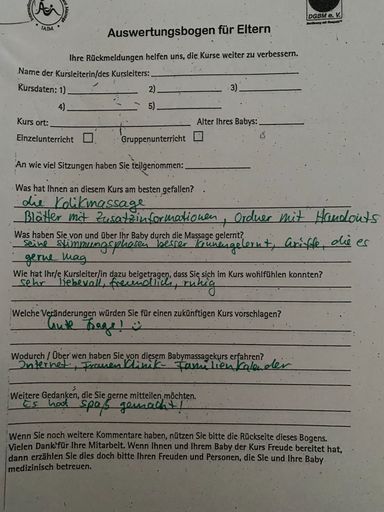 IAIM
DGBM e. V.
Auswertungsbogen für Eltern
Ihre Rückmeldungen helfen uns, die Kurse weiter zu verbessern.
Name der Kursleiterin/des Kursleiters:
Kursdaten: 1) 2) 3)
4) 5)
Kurs ort: Alter Ihres Babys:
Einzelunterricht Gruppenunterricht
An wie viel Sitzungen haben Sie teilgenommen:
Was hat Ihnen an diesem Kurs am besten gefallen?
die Kolikmassage
Blätter mit Zusatzinformationen, Ordner mit Handouts
Was haben Sie von und über Ihr Baby durch die Massage gelernt?
seine Stimmungsphasen besser kennengelernt, Griffe, die es
gerne mag
Wie hat Ihr/e Kursleiter/in dazu beigetragen, dass Sie sich im Kurs wohlfühlen konnten?
sehr liebevoll, freundlich, ruhig
Welche Veränderungen würden Sie für einen zukünftigen Kurs vorschlagen?
Gute Frage! ☺
Wodurch / Über wen haben Sie von diesem Babymassagekurs erfahren?
Internet, Frauenklinik- Familienkalender
Weitere Gedanken, die Sie gerne mitteilen möchten.
Es hat Spaß gemacht!
Wenn Sie noch weitere Kommentare haben, nützen Sie bitte die Rückseite dieses Bogens.
Vielen Dank für Ihre Mitarbeit. Wenn Ihnen und Ihrem Baby der Kurs Freude bereitet hat,
dann erzählen Sie dies doch bitte Ihren Freunden und Personen, die Sie und Ihre Baby
medizinisch betreuen.